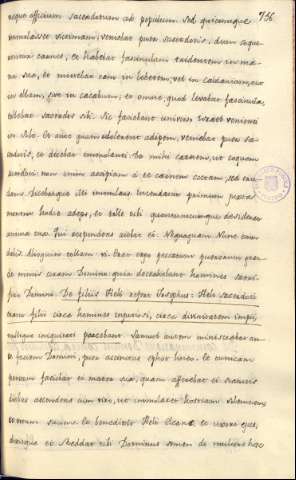 756
neque officium sacerdotum ad populum sed quicumque
immolasset victimam, veniebat puer sacerdotis, dum coque-
rentur carnes, et habebat fuscinulam tridentem in ma-
nu sua, et mittebat eam in lebetem, vel in caldariam, aut
in ollam, sive in cacabum, et omne, quod levabat fuscinula,
tollebat sacerdos sibi. Sic faciebant universo Israeli venientium
in Silo. Et antequam adolerent adipem, veniebat puer sa-
cerdotis, et dicebat immolanti: Da mihi carnem, ut coquam
sacerdoti: non enim accipiam a te carnem coctam, sed cru-
dam. Dicebatque illi immolans: Incendatur primum juxta
morem hodie adeps, et tolle tibi quantumcumque desiderat
anima tua. Qui respondens aiebat ei: Nequaquam: Nunc enim
dabis, alioquin tollam vi. Erat ergo peccatum puerorum gran-
de nimis coram Domino: quia detrahebant homines sacri-
ficio Domini. De filiis Heli
erant filii circa homines injuriosi, circa divinitatem impii,
nullique iniquitati parcebant. Samuel autem ministrabat an-
te faciem Domini, puer accinctus ephod lineo. Et tunicam
parvam faciebat ei mater sua, quam afferebat ei statutis
diebus ascendens cum viro, ut immolaret hostiam solemnem
et votum suum. Et benedixit Heli Elcanæ et uxori ejus,
dixitque ei: Reddat tibi Dominus semen de muliere hac